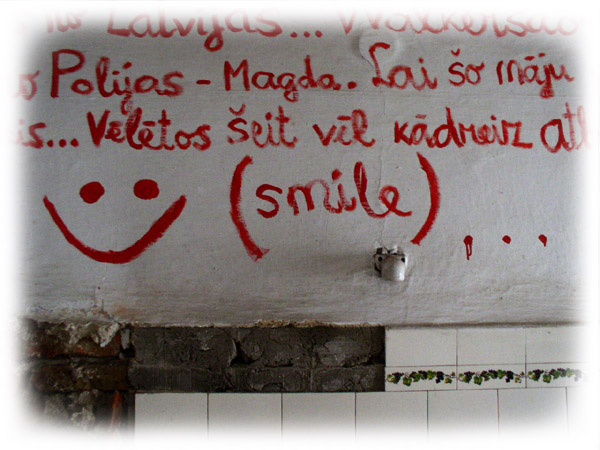 Latvijas...
Polijas - Magda. Lai šo māju
Vēlētos šeit vēl kādreiz
(smile)...